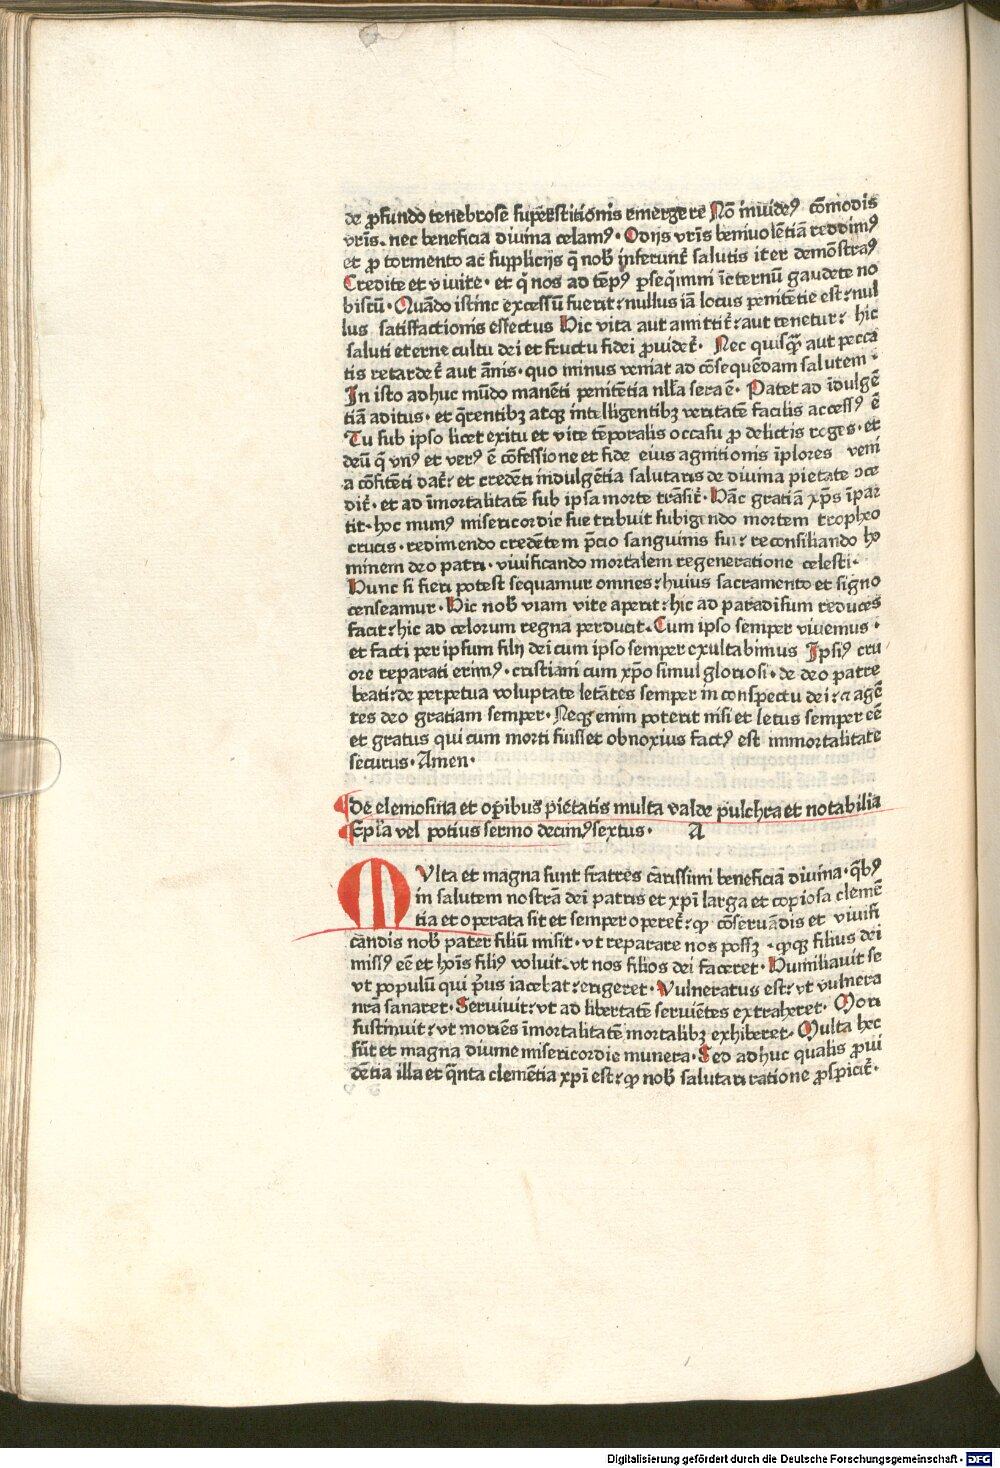 de ꝓfundo tenebrose suꝑstitionis emergere Nō inuideꝰ cōmodis
vr̄is. nec beneficia diuina celamꝰ · Odijs vr̄is beniuolētiā reddimꝰ
et ꝓ tormento ac supplicijs q̄ nob̄ inferunt̄ salutis iter demōstraꝰ
Credite et viuite · et q̄ nos ad tēpꝰ ꝑseq̄mini ī eternū gaudete no
biscū · Quādo istinc excessū fuerit: nullus iā locus penitētie est: nul
lus satisfactionis effectus Hic vita aut amittit̄: aut tenetur: hic
saluti eterne cultu dei et fructu fidei ꝓuidet̄. Nec quisq̄ꝫ aut pecca
tis retardet̄ aut ānis · quo minus veniat ad cōsequēdam salutem ·
In isto adhuc mūdo manēti penitētia nll̄a sera ē. Patet ad īdulgē
tiā aditus · et q̄rentibꝫ atqꝫ intelligentibꝫ veritatē facilis accessꝰ ē
Tu sub ipso licet exitu et vite tēporalis occasu ꝓ delictis roges · et
deū q̄ vnꝰ et verꝰ ē cōfessione et fide eius agnitionis īplores veni
a cōfitēti dat̄: et credēti indulgētia salutaris de diuina pietate ↄce
dit̄ · et ad īmortalitatē sub ipsa morte trāsit̄ · Hāc gratiā xp̄s īpar
tit · hoc munꝰ misericordie sue tribuit subigendo mortem tropheo
crucis · redimendo credētem p̄cio sanguinis sui: reconsiliando ho
minem deo patri · viuificando mortalem regeneratione celesti ·
Hunc si fieri potest sequamur omnes: huius sacramento et signo
censeamur · Hic nob̄ viam vite aperit: hic ad paradisum reduces
facit: hic ad celorum regna perducit. Cum ipso semper viuemus ·
et facti per ipsum filij dei cum ipso semper exultabimus Ipsiꝰ cru
ore reparati erimꝰ · cristiani cum xp̄o simul gloriosi · de deo patre
beati: de perpetua voluptate letātes semper in conspectu dei: ⁊ agē
tes deo gratiam semper · Neqꝫ enim poterit nisi et letus semper eē
et gratus qui cum morti fuisset obnoxius factꝰ est immortalitate
securus · Amen ·
De elemosina et oꝑibus pietatis multa valde pulchra et notabilia
Epl̄a vel potius sermo decimꝰsextus · A
MVlta et magna sunt fratres carissimi beneficia diuina · q̄bꝰ
in salutem nostrā dei patris et xp̄i larga et copiosa clemē
tia et operata sit et semper operet̄: ꝙ cōseruādis et viuifi
candis nob̄ pater filiū misit · vt reparare nos possꝫ · ꝙqꝫ filius dei
missꝰ eē et hoīs filiꝰ voluit. vt nos filios dei faceret · Humiliauit se
vt populū qui p̄us iacebat: erigeret · Vulneratus est: vt vulnera
nr̄a sanaret · Seruiuit: vt ad libertatē seruiētes extraheret · Mori
sustinuit: vt moriēs īmortalitatē mortalibꝫ exhiberet · Multa hec
sūt et magna diuine misericordie munera · Sed adhuc qualis ꝓui
dētia illa et q̄nta clemētia xp̄i est: ꝙ nob̄ salutari ratione ꝓspicit̄ ·
Digitalisierung gefördert durch die Deutsche Forschungsgemeinschaft - DFG